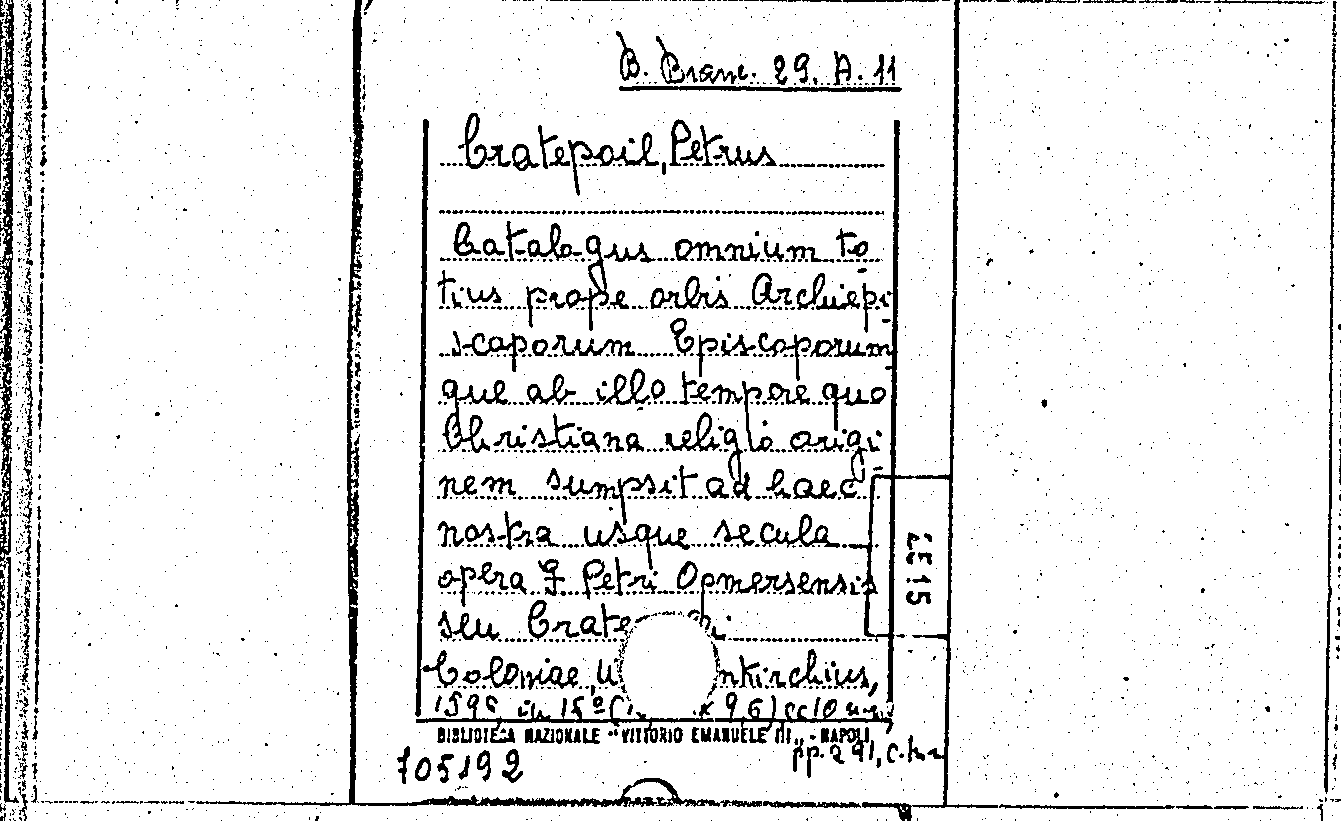 B. Branc. 29. A. 11
Cratepoil, Petrus
Catalogus omnium to-
tius prope orbis Archiepi-
scoporum Episcoporum-
que ab illo tempore quo
Christiana religio origi-
nem sumpsit ad haec
nostra usque secula
opera F. Petri Opmersensis
seu
Coloniae,
in
BIBLIOTECA NAZIONALE "VITTORIO EMANUELE III" - NAPOLI
pp. 291, c.
705192